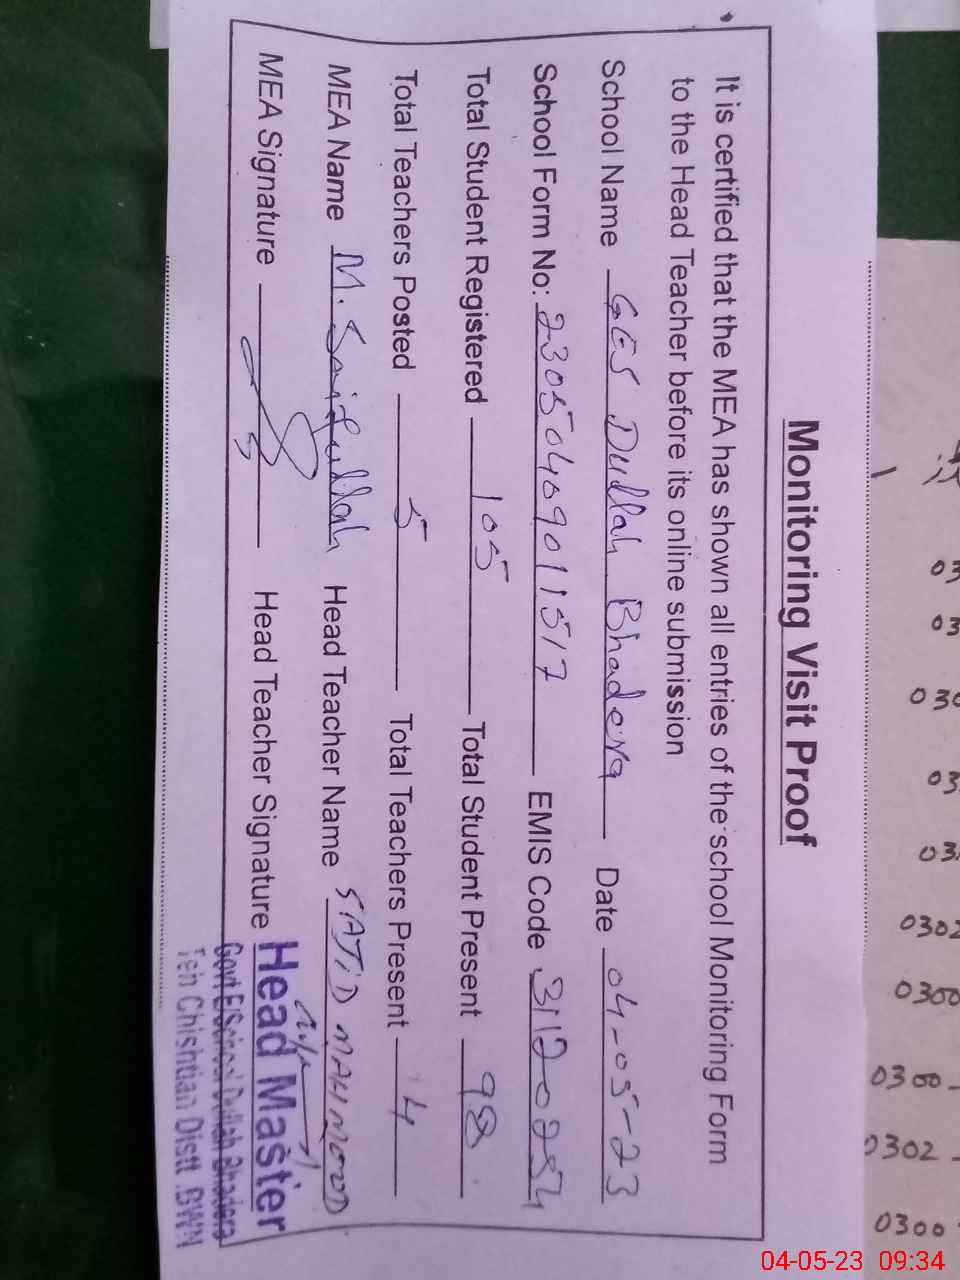 Monitoring Visit Proof
It is certified that the MEA has shown all entries of the school Monitoring Form
to the Head Teacher before its online submission
School Name GES Dullah Bhadera Date 04-05-23
School Form No: 23050409011517 EMIS Code 31120254
Total Student Registered 105 Total Student Present 98
Total Teachers Posted 5 Total Teachers Present 4
MEA Name M. Saifullah Head Teacher Name SAJiD MAHMOOD
MEA Signature Head Teacher Signature
Head Master
Govt E/School Dullah Bhadera
Teh Chishtian Distt. BWN
03
03
030
03
03
0302
0300
0300 -
0302 -
0300
04-05-23 09:34